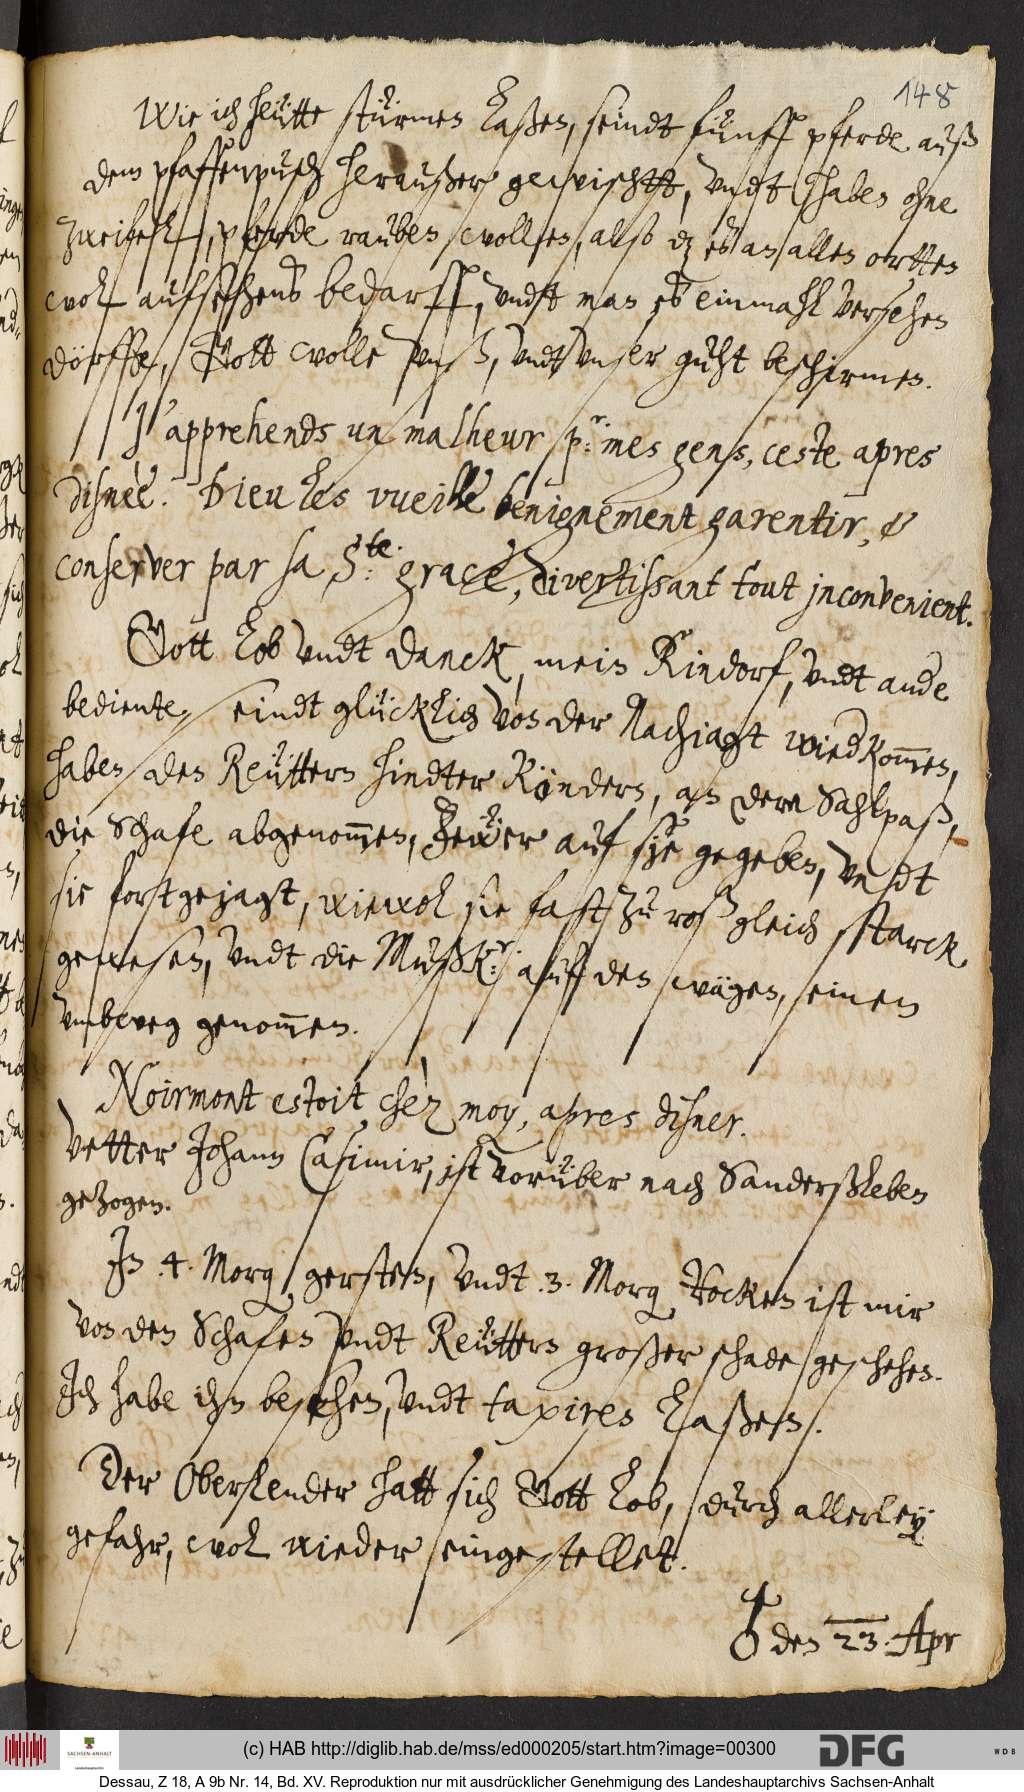 148
Wie ich heütte stürmen laßen, seindt fünff pferde auß
dem pfaffenpusch heraußer gewischtt, undt haben ohne
zweifell, pferde rauben wollen, also dz es an allen ortten
wol aufsehens bedarff, undt man es einmahl versehen
dörffte, Gott wolle unß, undt unser guht beschirmen.
J'apprehends un malheur p.r mes gens, ceste apres
disnèè. Dieu les vueille benignement garentir, &
conserver par sa S.te grace, divertissant tout jnconvenient.
Gott lob undt danck, mein Rindorf, undt ande
bediente, seindt glücklich von der Nachjagt wiedkom̅en,
haben den Reüttern hindter Röndern, an dem Sahlpaß,
die Schafe abgenom̅en, Feẅer auf sie gegeben, undt
sie fortgejagt, wiewol sie fast zu roß gleich starck
gewesen, undt die Mußk.r auf den wägen, einen
umbweg genom̅en.
Noirmont estoit chèz moy, apres disner.
Vetter Johann Casimir, ist vorüber nach Sanderßleben
gezogen.
In .4. Morg gersten, undt .3. Morg Rocken ist mir
von den Schafen undt Reüttern großer schade geschehen.
Ich habe ihn besehen, undt taxiren laßen.
Der Oberlender hatt sich Gott lob, durch allerley
gefahr, wol wieder eingestellet.
♁ den 23. Apr
(c) HAB http://diglib.hab.de/mss/ed000205/start.htm?image=00300
SACHSEN-ANHALT
Landeshauptarchiv
DFG
WDB
Dessau, Z 18, A 9b Nr. 14, Bd. XV. Reproduktion nur mit ausdrücklicher Genehmigung des Landeshauptarchivs Sachsen-Anhalt